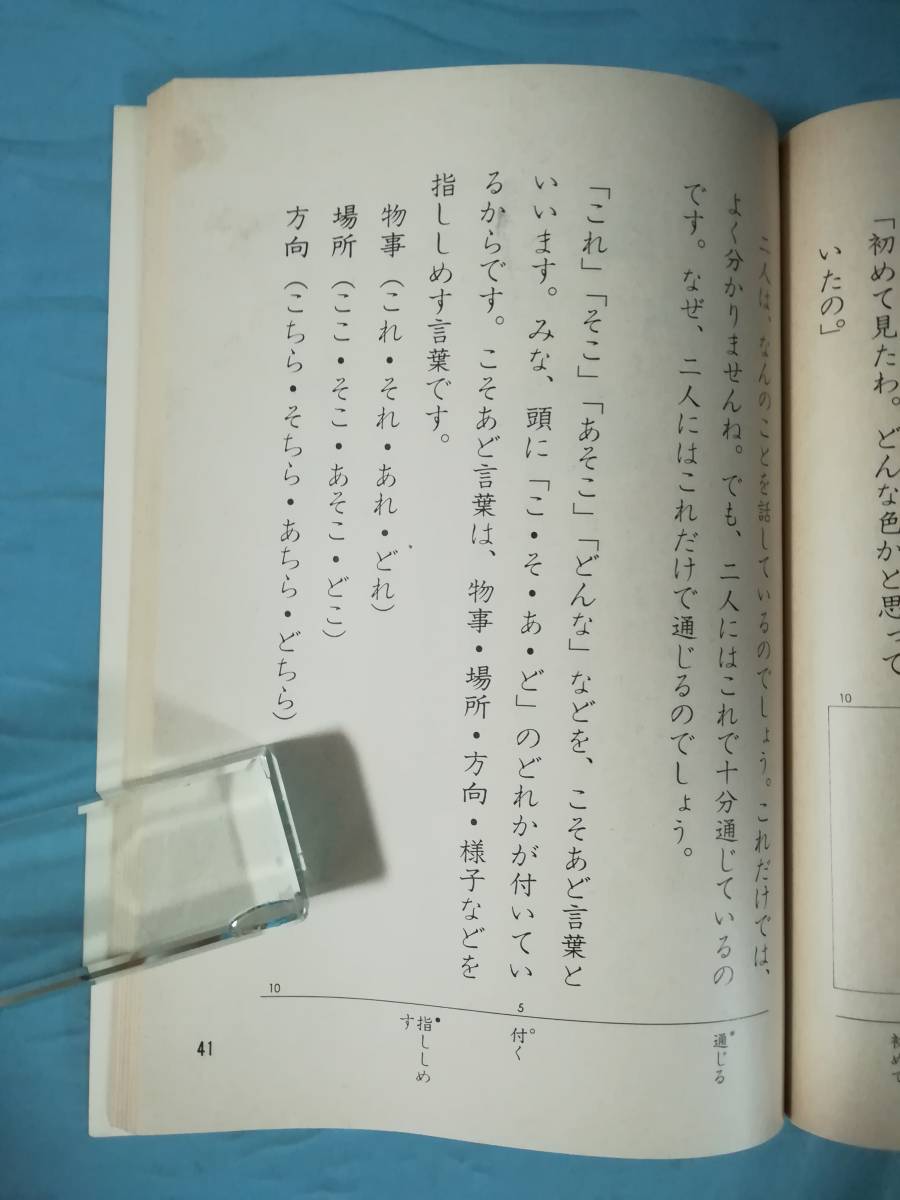 「初めて見たわ。どんな色かと思って
いたの。」
10
初めて
二人は、なんのことを話しているのでしょう。これだけでは、
よく分かりませんね。でも、二人にはこれで十分通じているの
です。なぜ、二人にはこれだけで通じるのでしょう。
「これ」「そこ」「あそこ」「どんな」などを、こそあど言葉と
いいます。みな、頭に「こ・そ・あ・ど」のどれかが付いてい
るからです。こそあど言葉は、物事・場所・方向・様子などを
指ししめす言葉です。
物事（これ・それ・あれ・どれ）
場所（ここ・そこ・あそこ・どこ）
方向（こちら・そちら・あちら・どちら）
通じる
5
付く
指ししめ
す
10
41